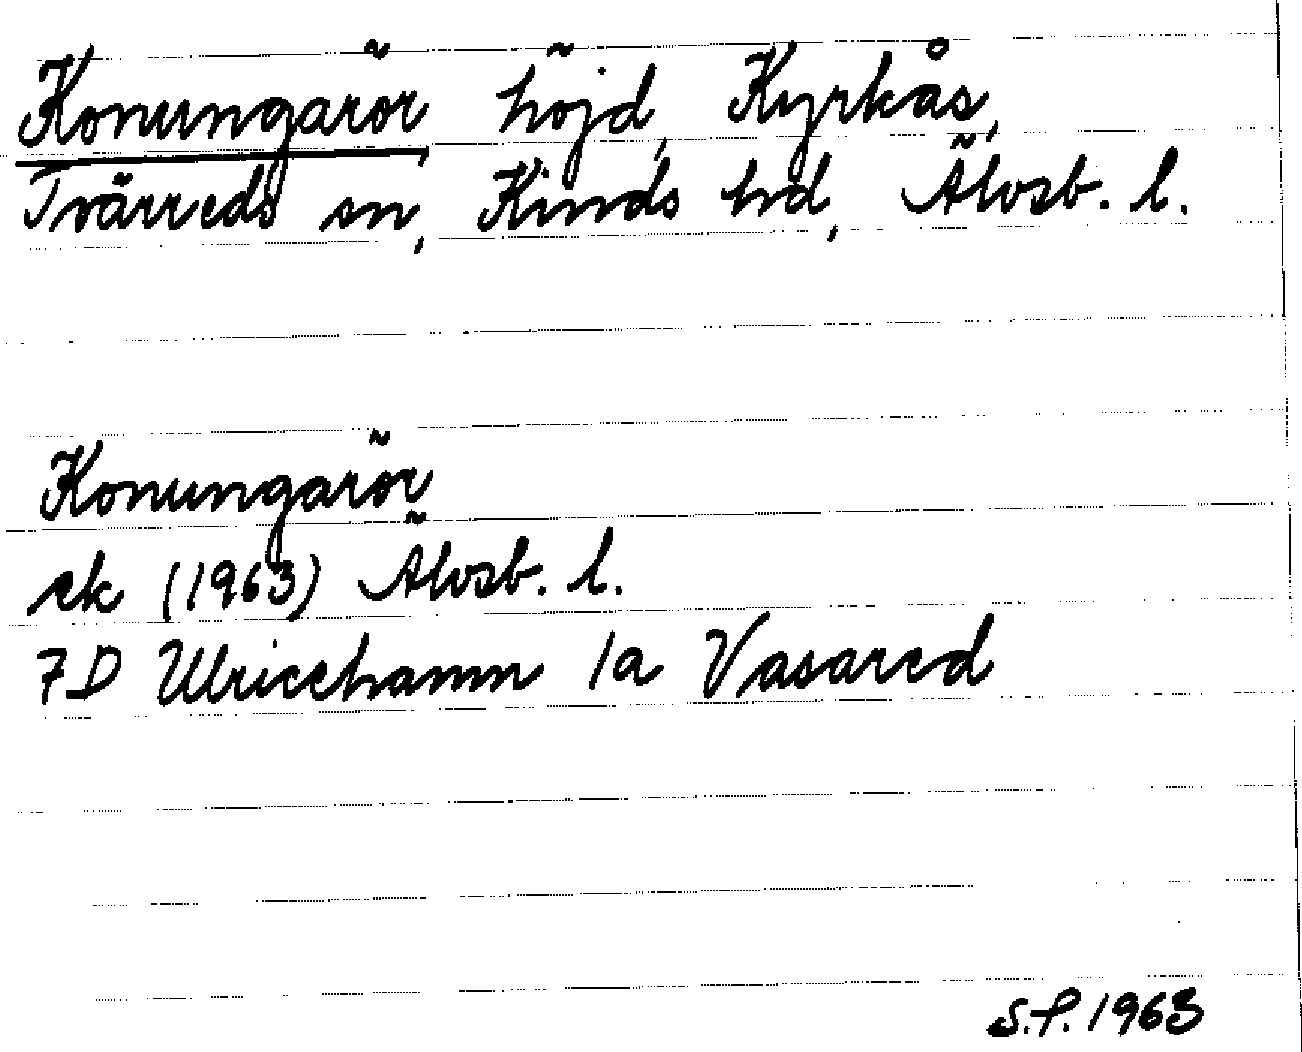 Konungarör, höjd, Kyrkås,
Tvärreds sn, Kinds hd, Älvsb. l.
Konungarör
ek (1963) Älvsb. l.
7D Ulricehamn 1a Vasared
S.P. 1963